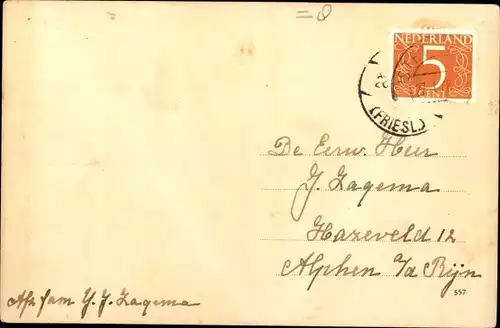 NEDERLAND
5
CENT
(FRIESL.)
De Eerw. Heer
J. Zagema
Hazeveld 12
Alphen a/d Rijn
Afz fam Y. J. Zagema
557